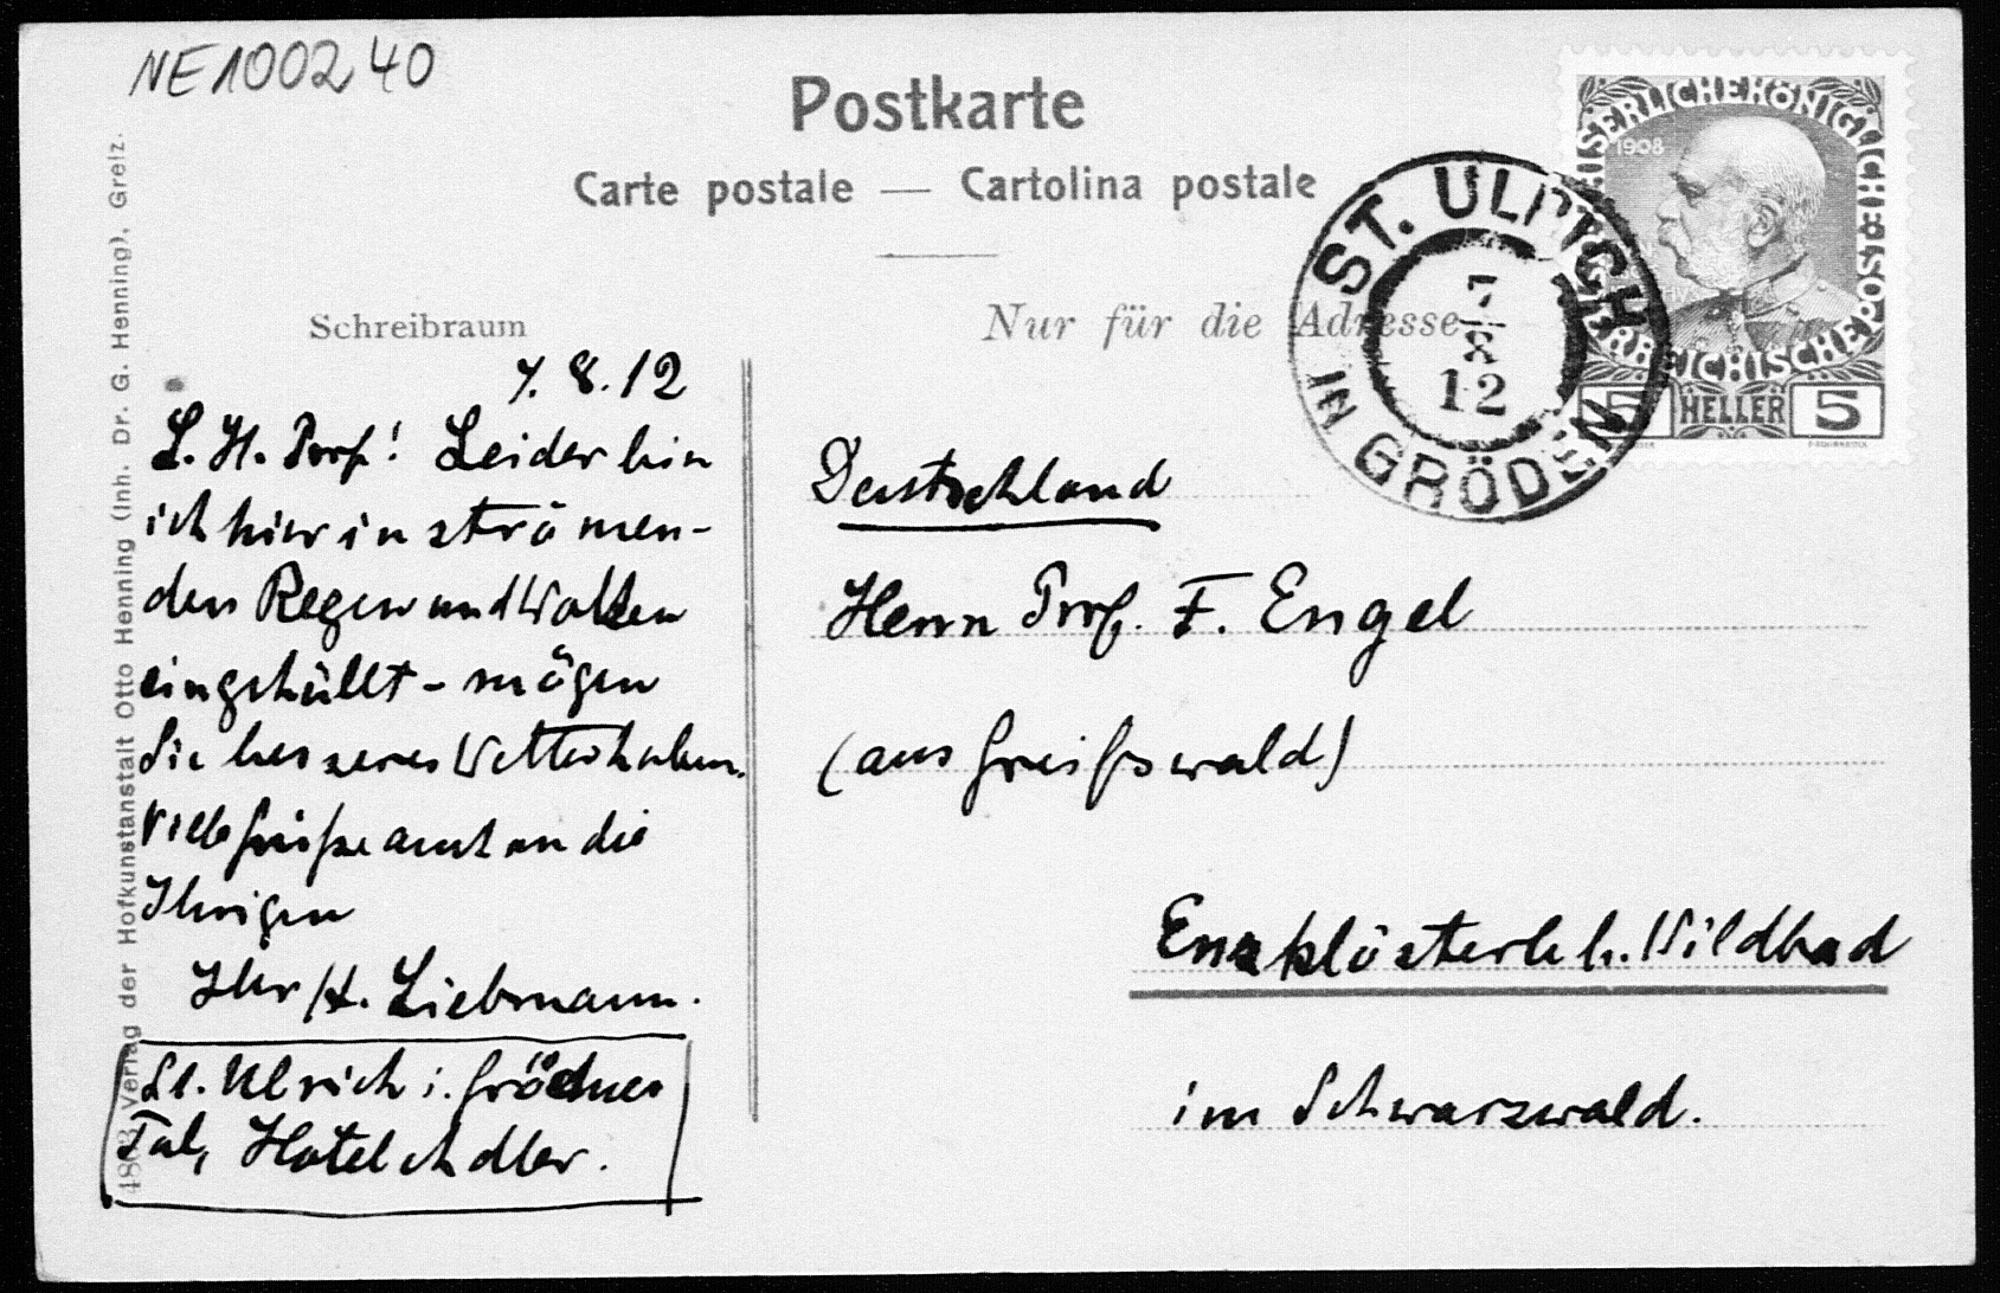 NE100240
Postkarte
Carte postale — Cartolina postale
Schreibraum
Nur für die Adresse
KAISERLICHE KÖNIGLICHE ÖSTERREICHISCHE POST
1908
5 HELLER 5
ST. ULRICH
IN GRÖDEN
7
8
12
7.8.12
L. H. Prof! Leider bin
ich hier in strömen-
den Regen und Wolken
eingehüllt - mögen
Sie besseres Wetter haben.
Viele Grüße auch an die
Ihrigen
Ihr H. Liebmann.
St. Ulrich i. Grödner
Tal, Hotel Adler.
Deutschland
Herrn Prof. F. Engel
(aus Greifswald)
Enzklösterle b. Wildbad
im Schwarzwald.
4863 Verlag der Hofkunstanstalt Otto Henning (Inh. Dr. G. Henning), Greiz.